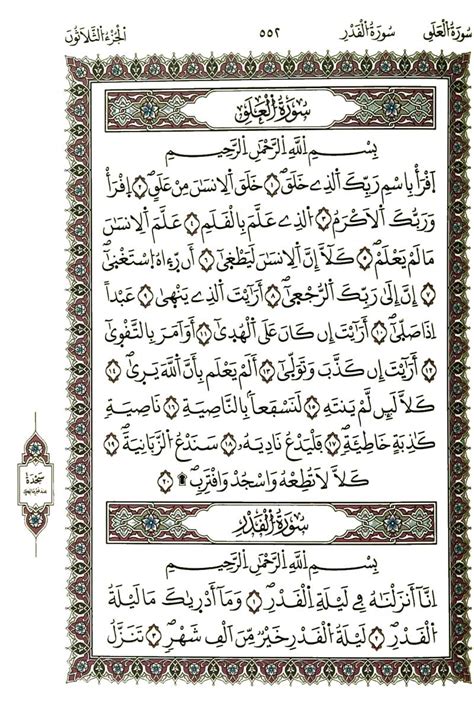 سُورَةُ الْعَلَقِ سُورَةُ الْقَدْرِ ٥٥٢ الْجُزْءُ الثَّلَاثُونَ
سُورَةُ الْعَلَقِ
بِسْمِ اللَّهِ الرَّحْمَٰنِ الرَّحِيمِ
اِقْرَأْ بِاسْمِ رَبِّكَ الَّذِي خَلَقَ ١ خَلَقَ الْإِنْسَانَ مِنْ عَلَقٍ ٢ اِقْرَأْ
وَرَبُّكَ الْأَكْرَمُ ٣ الَّذِي عَلَّمَ بِالْقَلَمِ ٤ عَلَّمَ الْإِنْسَانَ
مَا لَمْ يَعْلَمْ ٥ كَلَّا إِنَّ الْإِنْسَانَ لَيَطْغَىٰ ٦ أَنْ رَءَاهُ اسْتَغْنَىٰ
٧ إِنَّ إِلَىٰ رَبِّكَ الرُّجْعَىٰ ٨ أَرَأَيْتَ الَّذِي يَنْهَىٰ ٩ عَبْدًا
إِذَا صَلَّىٰ ١٠ أَرَأَيْتَ إِنْ كَانَ عَلَى الْهُدَىٰ ١١ أَوْ أَمَرَ بِالتَّقْوَىٰ
١٢ أَرَأَيْتَ إِنْ كَذَّبَ وَتَوَلَّىٰ ١٣ أَلَمْ يَعْلَمْ بِأَنَّ اللَّهَ يَرَىٰ ١٤
كَلَّا لَئِنْ لَمْ يَنْتَهِ ١٥ لَنَسْفَعًا بِالنَّاصِيَةِ ١٦ نَاصِيَةٍ
كَاذِبَةٍ خَاطِئَةٍ ١٧ فَلْيَدْعُ نَادِيَهُ ١٨ سَنَدْعُ الزَّبَانِيَةَ ١٩
كَلَّا لَا تُطِعْهُ وَاسْجُدْ وَاقْتَرِبْ ۩ ٢٠
سَجْدَة
سُورَةُ الْقَدْرِ
بِسْمِ اللَّهِ الرَّحْمَٰنِ الرَّحِيمِ
إِنَّا أَنْزَلْنَاهُ فِي لَيْلَةِ الْقَدْرِ ١ وَمَا أَدْرَاكَ مَا لَيْلَةُ
الْقَدْرِ ٢ لَيْلَةُ الْقَدْرِ خَيْرٌ مِنْ أَلْفِ شَهْرٍ ٣ تَنَزَّلُ